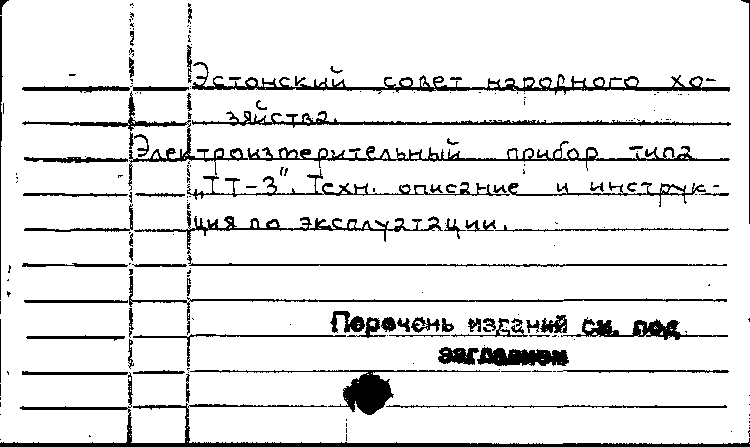 Эстонский совет народного хо-
зяйства.
Электроизмерительный прибор типа
„ТТ-3". Техн. описание и инструк-
ция по эксплуатации.
Перечень изданий см. под
заглавием